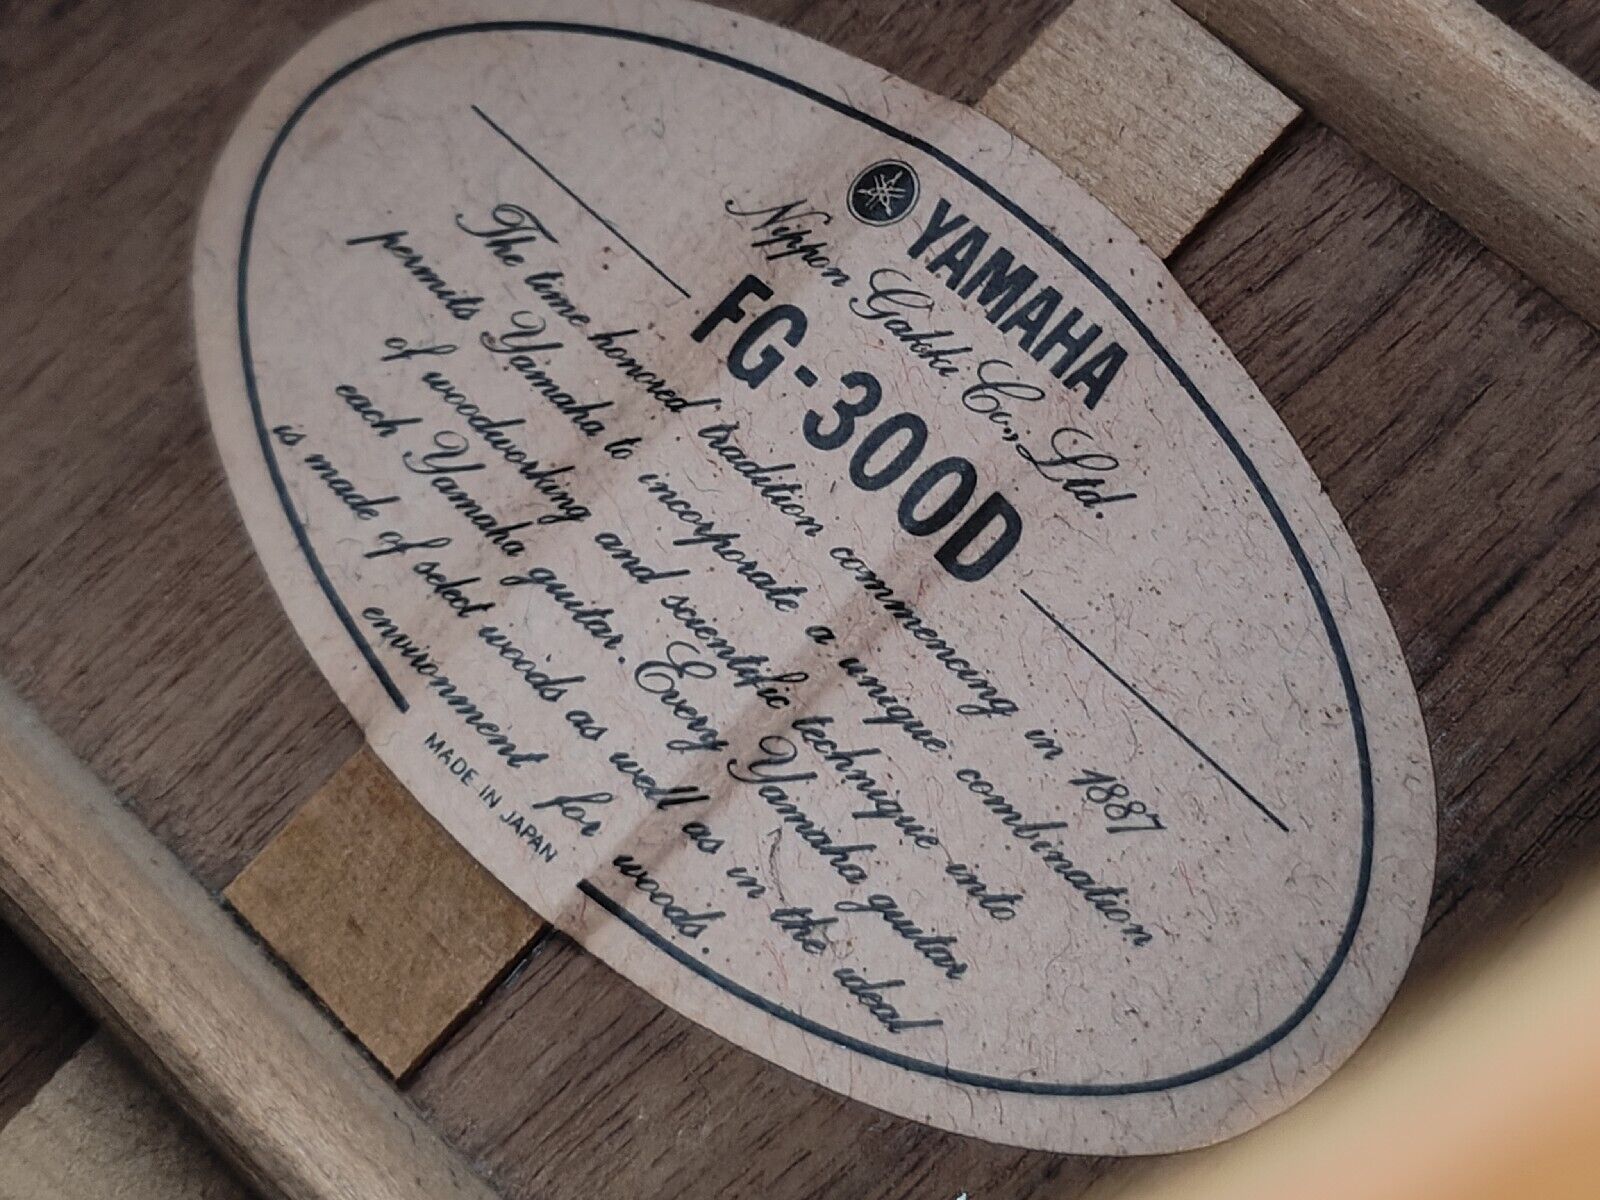 YAMAHA
Nippon Gakki Co., Ltd.
FG-300D
The time honored tradition commencing in 1887
permits Yamaha to incorporate a unique combination
of woodworking and scientific technique into
each Yamaha guitar. Every Yamaha guitar
is made of select woods as well as in the ideal
environment for woods.
MADE IN JAPAN